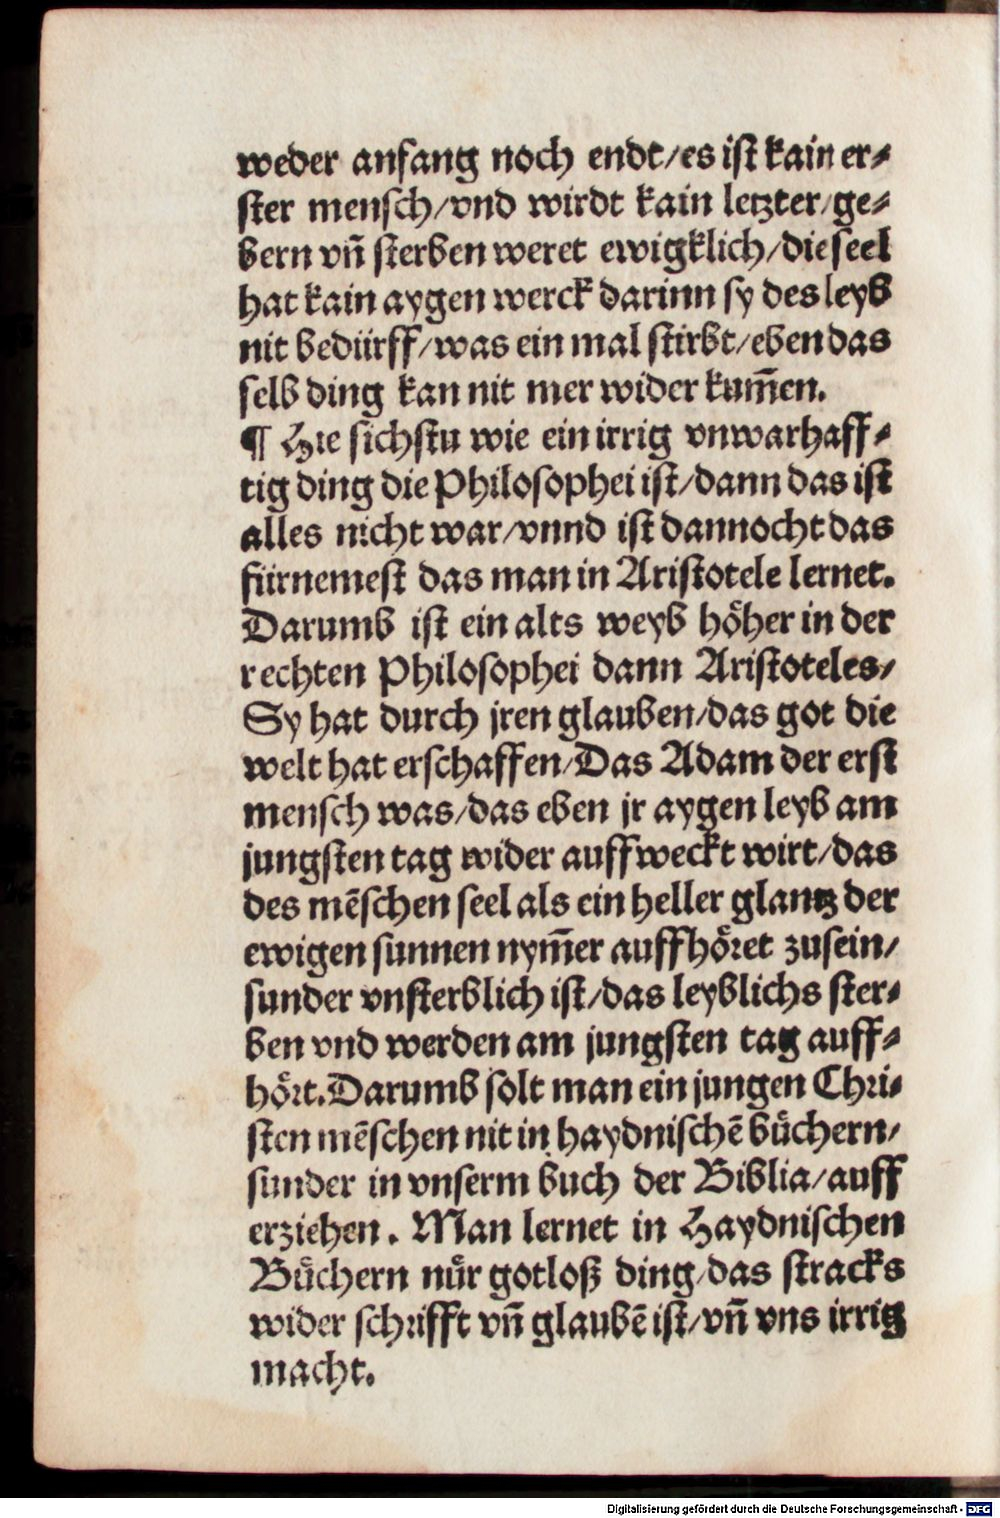 weder anfang noch endt/es ist kain er⸗
ster mensch/vnd wirdt kain letzter/ge⸗
bern vñ sterben weret ewigklich/die seel
hat kain aygen werck darinn sy des leyb
nit bedürff/was ein mal stirbt/eben das
selb ding kan nit mer wider kum̄en.
¶ Hie sichstu wie ein irrig vnwarhaff⸗
tig ding die Philosophei ist/dann das ist
alles nicht war/vnnd ist dannocht das
fürnemest das man in Aristotele lernet.
Darumb ist ein alts weyb hoͤher in der
rechten Philosophei dann Aristoteles/
Sy hat durch jren glauben/das got die
welt hat erschaffen/Das Adam der erst
mensch was/das eben jr aygen leyb am
jungsten tag wider auffweckt wirt/das
des mēschen seel als ein heller glantz der
ewigen sunnen nym̄er auffhoͤret zusein/
sunder vnsterblich ist/das leyblichs ster⸗
ben vnd werden am jungsten tag auff⸗
hoͤrt.Darumb solt man ein jungen Chri⸗
sten mēschen nit in haydnischē buͤchern/
sunder in vnserm buch der Biblia/auff
erziehen. Man lernet in Haydnischen
Buͤchern nuͤr gotloß ding/das stracks
wider schrifft vñ glaubē ist/vñ vns irrig
macht.
Digitalisierung gefördert durch die Deutsche Forschungsgemeinschaft - DFG